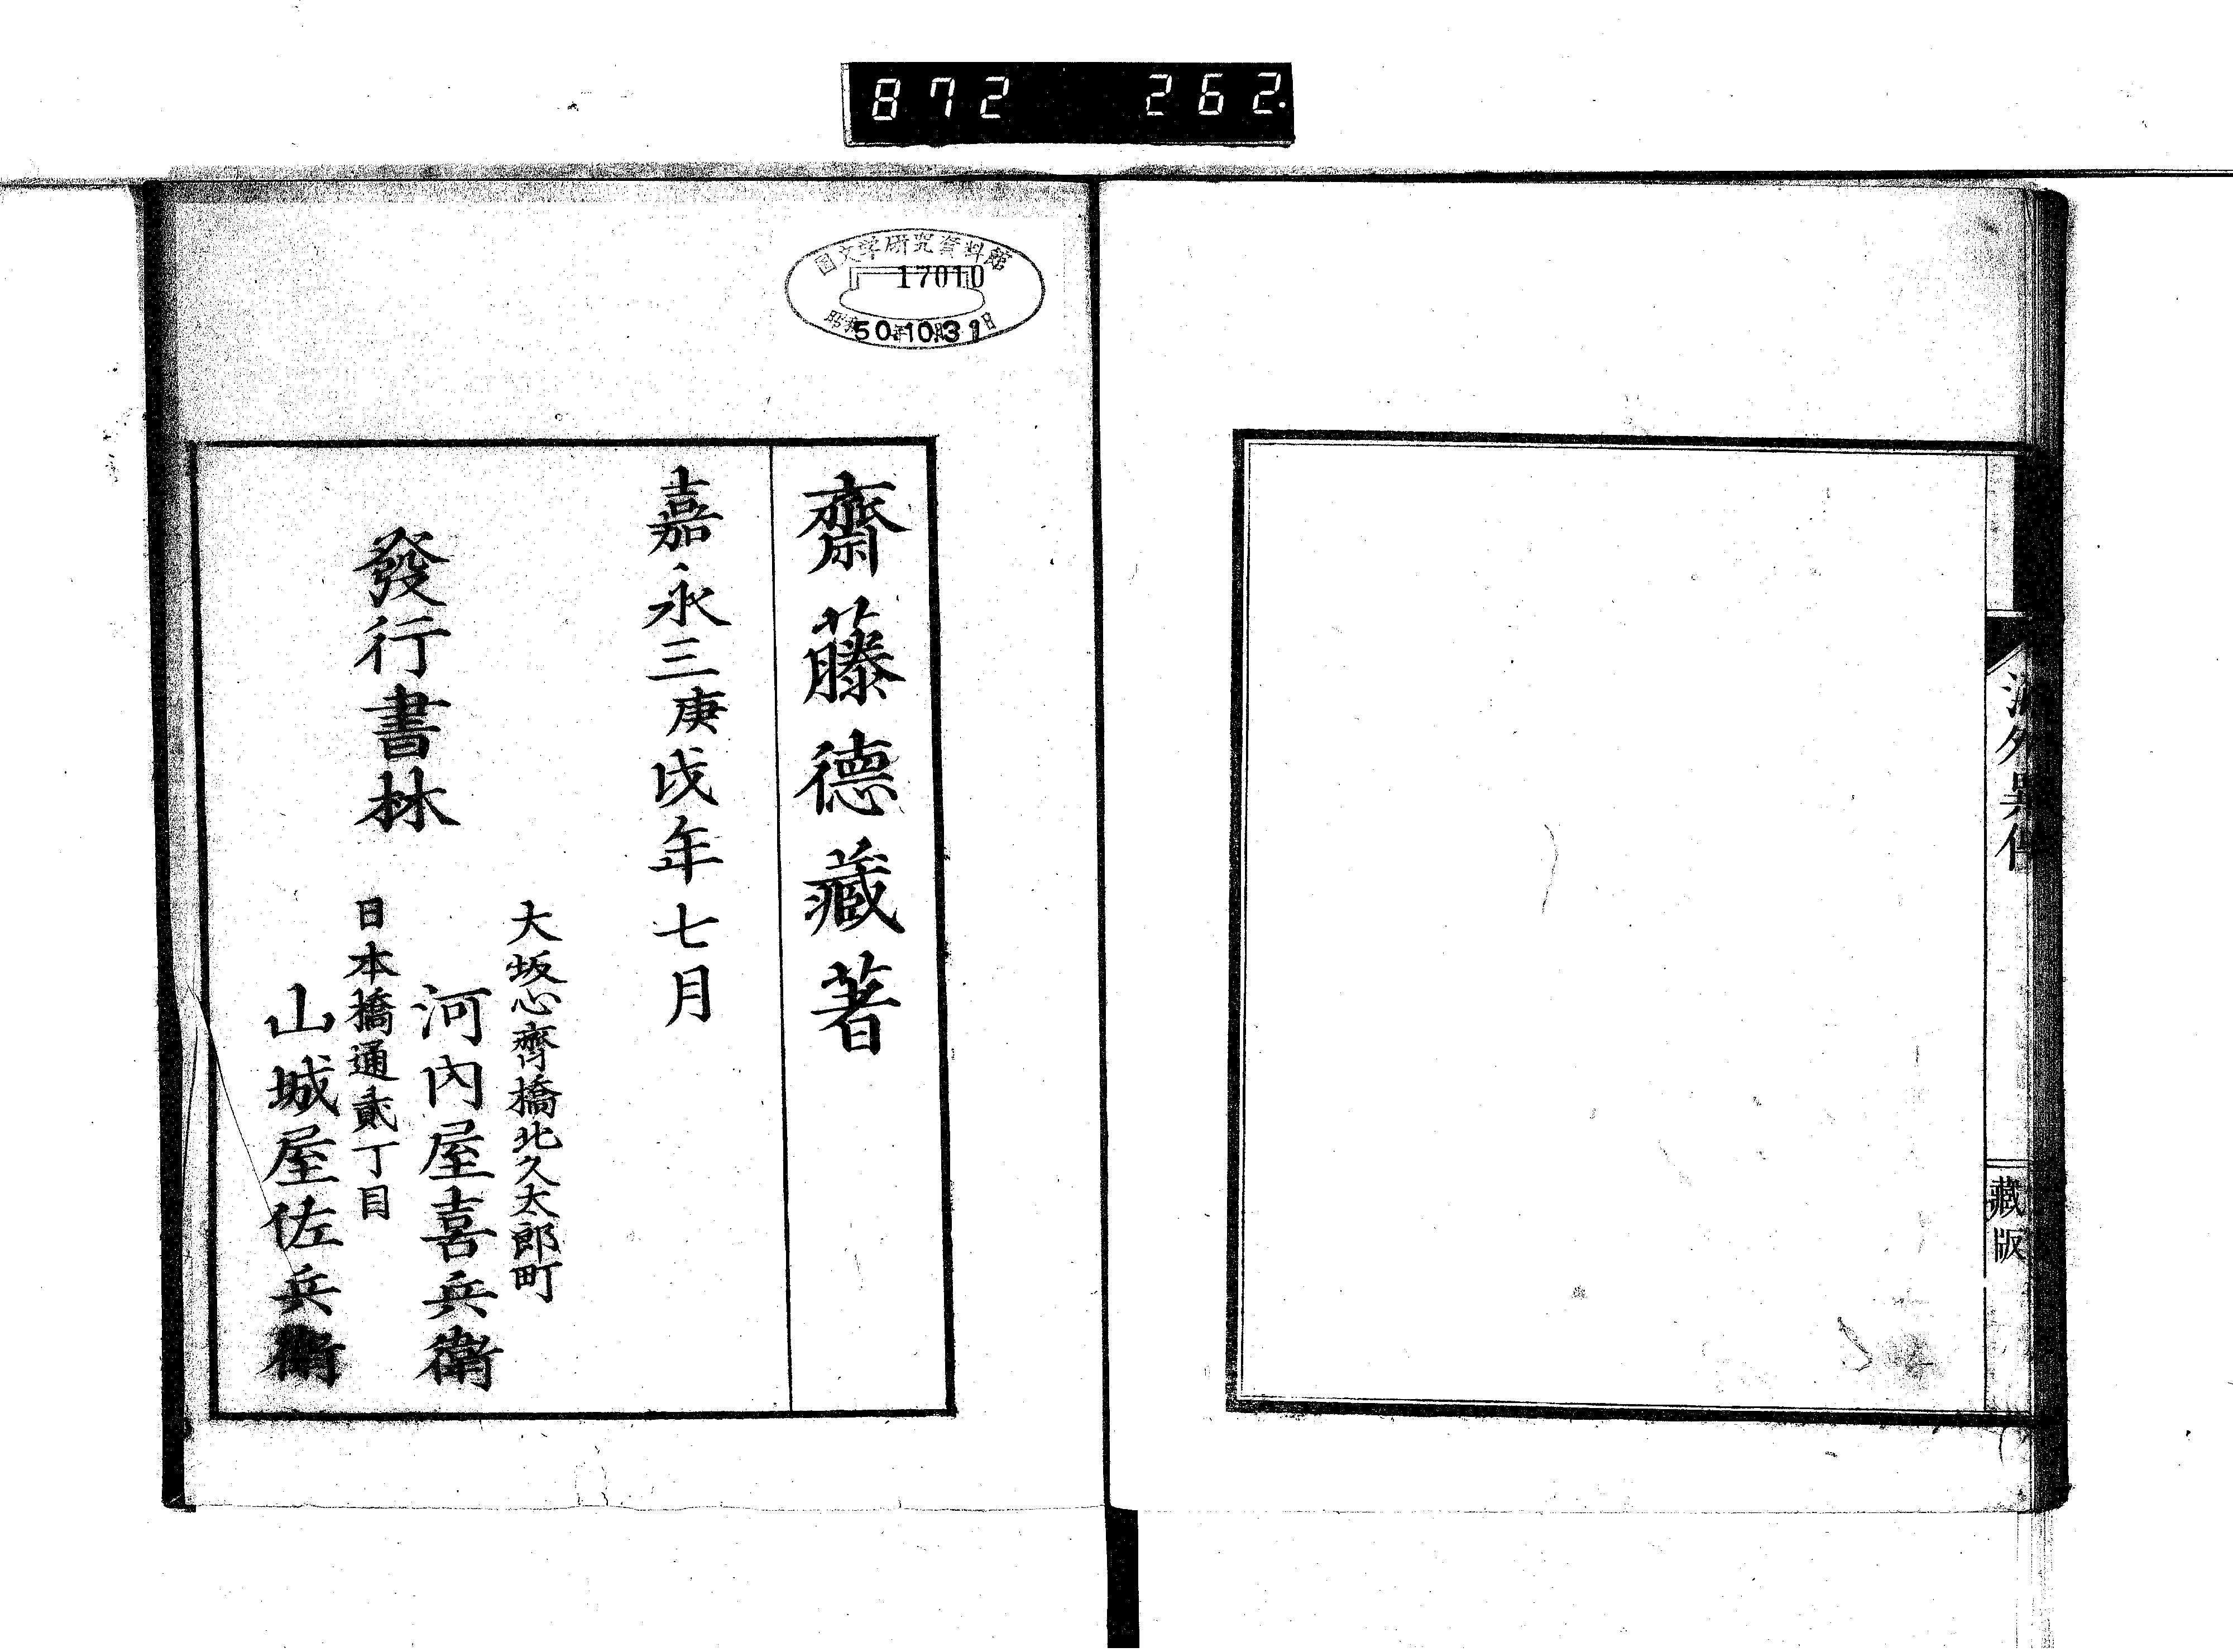 872 262
海外異傳
藏版
国文学研究資料館
17010
昭和 50.10.31
齋藤德藏著
嘉永三庚戌年七月
發行書林
大坂心齊橋北久太郎町
河內屋喜兵衛
日本橋通貳丁目
山城屋佐兵衛